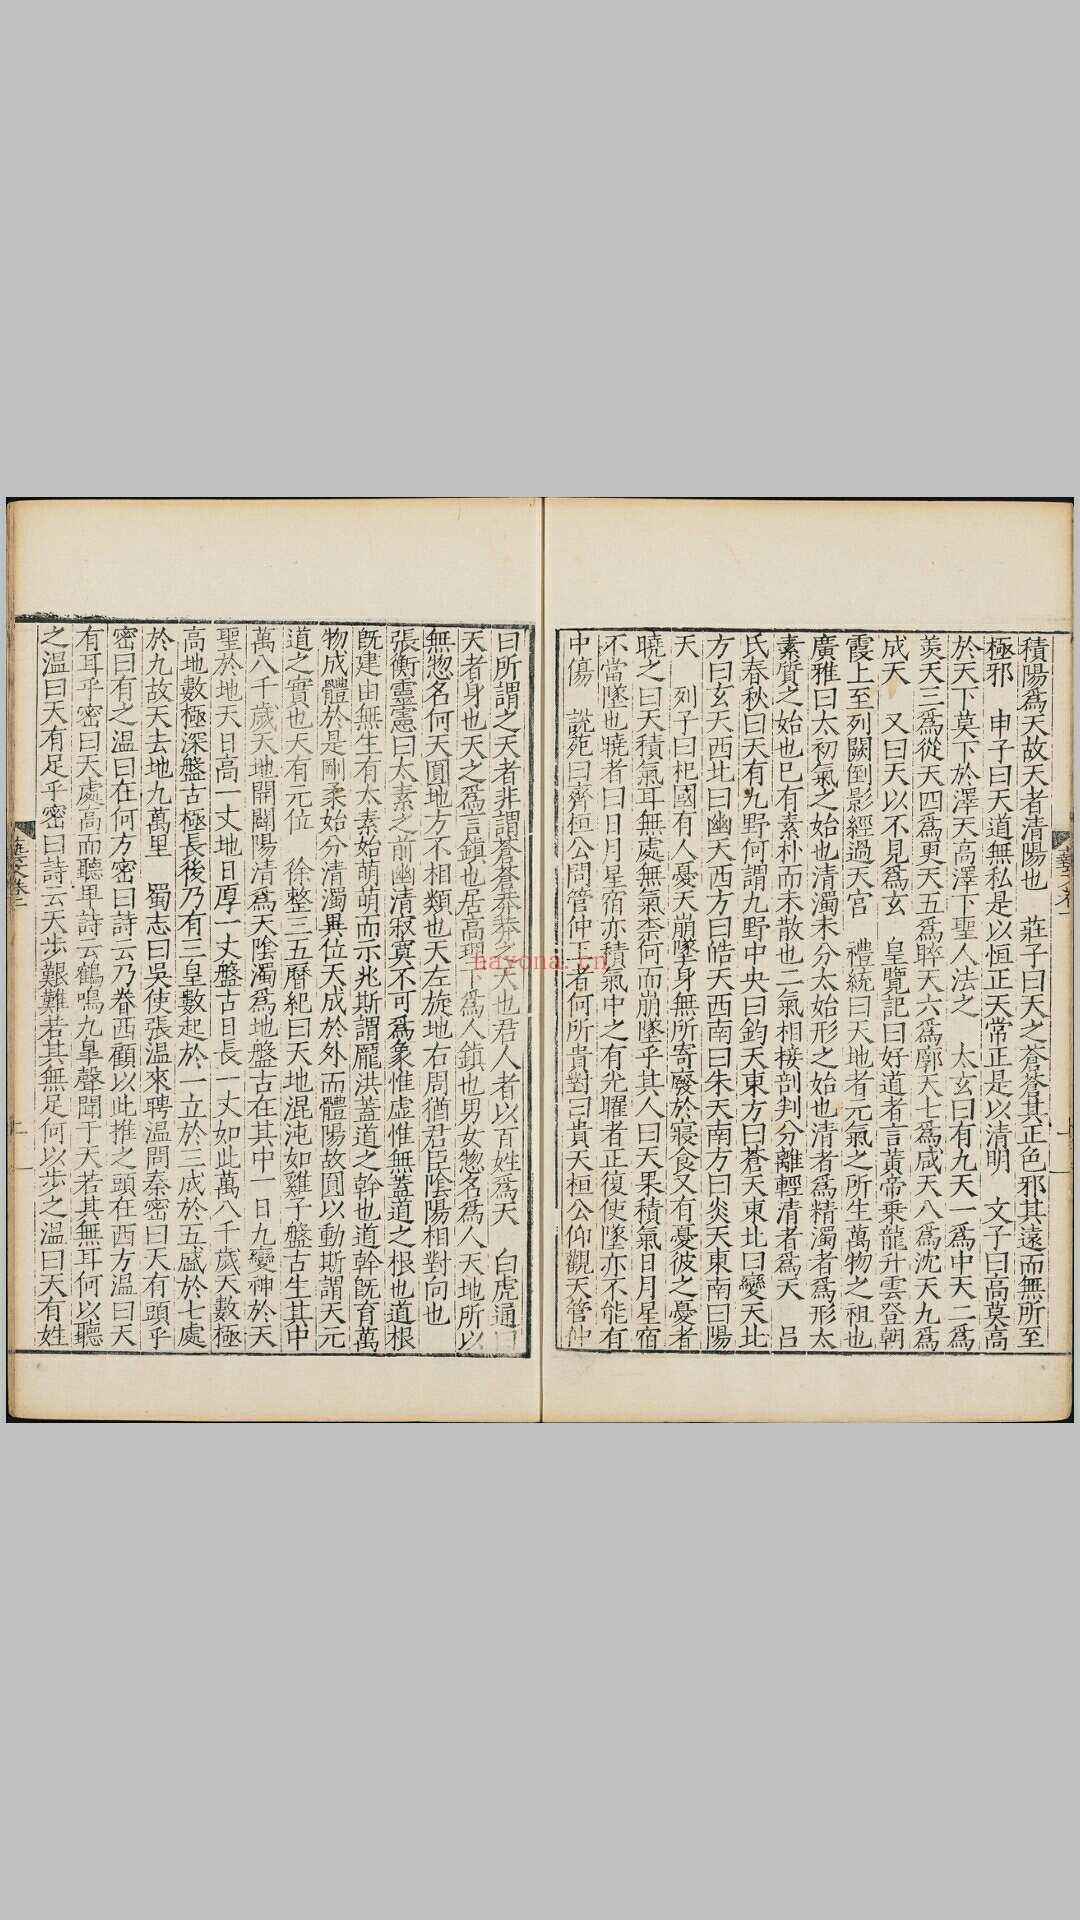 積陽爲天故天者清陽也 莊子曰天之蒼蒼其正色邪其遠而無所至
極邪 申子曰天道無私是以恒正天常正是以清明 文子曰高莫高
於天下莫下於澤天高澤下聖人法之 太玄曰有九天一爲中天二爲
羡天三爲從天四爲更天五爲睟天六爲廓天七爲咸天八爲沈天九爲
成天 又曰天以不見爲玄 皇覽記曰好道者言黃帝乘龍升雲登朝
霞上至列闕倒影經過天宮 禮統曰天地者元氣之所生萬物之祖也
廣雅曰太初氣之始也清濁未分太始形之始也清者爲精濁者爲形太
素質之始也巳有素朴而未散也二氣相接剖判分離輕清者爲天 吕
氏春秋曰天有九野何謂九野中央曰鈞天東方曰蒼天東北曰變天北
方曰玄天西北曰幽天西方曰皓天西南曰朱天南方曰炎天東南曰陽
天 列子曰杞國有人憂天崩墜身無所寄廢於寢食又有憂彼之憂者
曉之曰天積氣耳無處無氣柰何而崩墜乎其人曰天果積氣日月星宿
不當墜也曉者曰日月星宿亦積氣中之有光曜者正復使墜亦不能有
中傷 說苑曰齊桓公問管仲王者何所貴對曰貴天桓公仰觀天管仲
曰所謂之天者非謂蒼蒼莽莽之天也君人者以百姓爲天 白虎通曰
天者身也天之爲言鎮也居高理下爲人鎮也男女惣名爲人天地所以
無惣名何天圎地方不相類也天左旋地右周猶君臣陰陽相對向也
張衡靈憲曰太素之前幽清寂寞不可爲象惟虛惟無蓋道之根也道根
旣建由無生有太素始萌萌而示兆斯謂龐洪蓋道之幹也道幹旣育萬
物成體於是剛柔始分清濁異位天成於外而體陽故圓以動斯謂天元
道之實也天有元位 徐整三五曆紀曰天地混沌如雞子盤古生其中
萬八千歲天地開闢陽清爲天陰濁爲地盤古在其中一日九變神於天
聖於地天日高一丈地日厚一丈盤古日長一丈如此萬八千歲天數極
高地數極深盤古極長後乃有三皇數起於一立於三成於五盛於七處
於九故天去地九萬里 蜀志曰吳使張溫來聘溫問秦密曰天有頭乎
密曰有之溫曰在何方密曰詩云乃眷西顧以此推之頭在西方溫曰天
有耳乎密曰天處高而聽卑詩云鶴鳴九臯聲聞于天若其無耳何以聽
之溫曰天有足乎密曰詩云天步艱難若其無足何以步之溫曰天有姓
hayona.cn